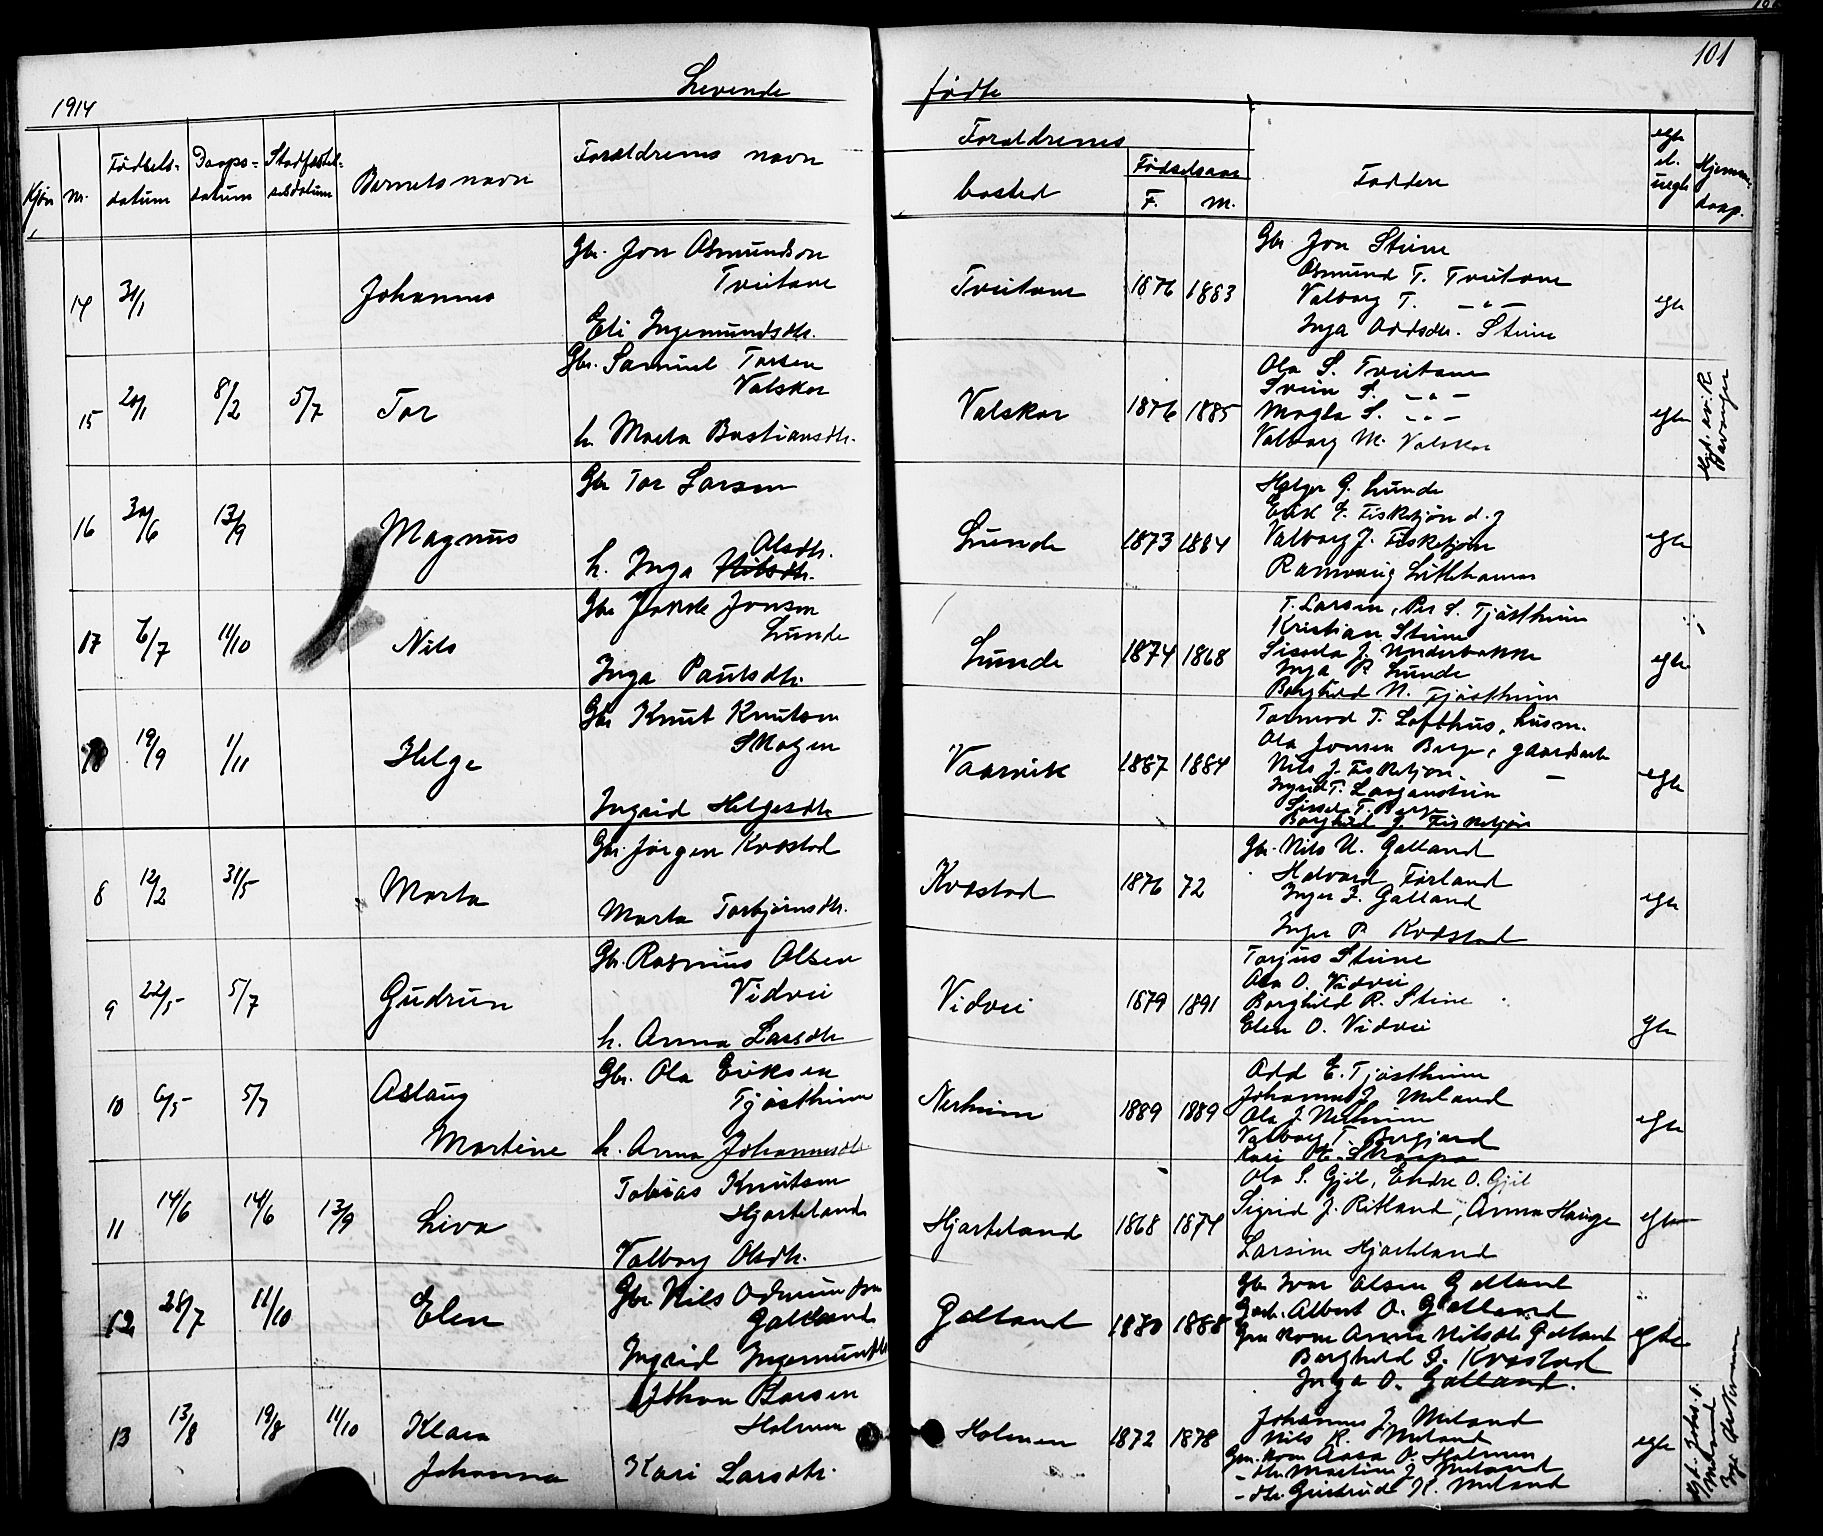 101
1914
Levende fødte
Kjøn
Nr.
Fødsels-
datum
Daaps-
datum
Stadfæstel-
sesdatum
Barnets navn
Forældrenes navn
Forældrenes
bosted
Fødselsaar
F. M.
Faddere
egte
el.
uegte
Hjemme-
daap.
14 31/1 Johannes
Gbr. Jon Osmundson
Tveitane
Eli Ingemundsdtr.
Tveitane 1876 1883
Gbr. Jon Steine
Osmund T. Tveitane
Valborg T. — " —
Inga Oddsdtr. Steine
egte
15 20/1 8/2 5/7 Tor
Gbr. Samuel Torsen
Valskar
h. Marta Bastiansdtr.
Valskar 1876 1885
Ola S. Tveitane
Svein S. — " —
Magla S. — " —
Valborg M. Valskar
egte
16 30/6 13/9 Magnus
Gbr Tor Larsen
Olsdtr.
h. Inga Nilsdtr.
Lunde 1873 1884
Helge G. Lunde
Eirik G. Fisketjøn d. y
Valborg J. Fisketjøn
Rannveig Litlehamar
egte
17 6/7 11/10 Nils
Gbr Jonsen
Lunde
Inga Paulsdtr.
Lunde 1874 1868
T. Larsen, Per S. Tjøstheim
Kristian Steine
Sissela J. Underbakke
Inga P. Lunde
Borghild N. Tjøstheim
egte
18 19/9 1/11 Helge
Gbr Knut Knutsen
Skogen
Ingrid Helgesdtr
Vaarvik 1887 1884
Tormod T. Lofthus, husm.
Ola Jonsen Berge, gaardsarb
Nils J. Fisketjøn —
Ingrid T. Laaganstein
Sissela T. Berge
Borghild J. Fisketjøn
egte
8 12/2 31/5 Marta
Gbr. Jørgen Kvæstad
Marta Torbjørnsdtr.
Kvæstad 1876 72
Gbr. Nils U. Galland
Halvard Førland
Inger I. Galland
Inger P. Kvæstad
egte
9 22/5 5/7 Gudrun
Gbr. Rasmus Olsen
Vidvei
h. Anna Larsdtr
Vidvei 1879 1891
Torjus Steine
Ola O. Vidvei
Borghild R. Steine
Elen O. Vidvei
egte
10 6/5 5/7 Aslaug
Martine
Gbr. Ola Eriksen
Tjøstheim
h. Anna Johannesdtr
Nerheim 1889 1889
Odd E. Tjøstheim
Johannes J. Meland
Ola J. Nerheim
Valborg T.
Kari
egte
11 14/6 14/6 13/9 Liva
Tobias Knutsen
Hjorteland
Valborg Olsdtr.
Hjorteland 1868 1874
Ola S. Gjil, Endre O. Gjil
Sigrid J. Ritland, Anna Hauge
Larsine Hjorteland
egte
12 28/7 11/10 Elen
Gbr Nils
Galland
Ingrid
Galland 1880 1888
Gbr Ivar Olsen Galland
Albert O. Galland
Gm kone Anna Nilsdtr Galland
Borghild J. Kvæstad
Inga O. Galland.
egte
13 13/8 19/8 11/10 Klara
Johanna
Johan Larsen
Holmen
Kari Larsdtr.
Holmen 1872 1878
Johannes J. Meland
Nils K. Meland
Gm. kone Aasa O. Holmen
— dtr. Martine J. Meland
— dtr. Gjertrud K. Meland
egte